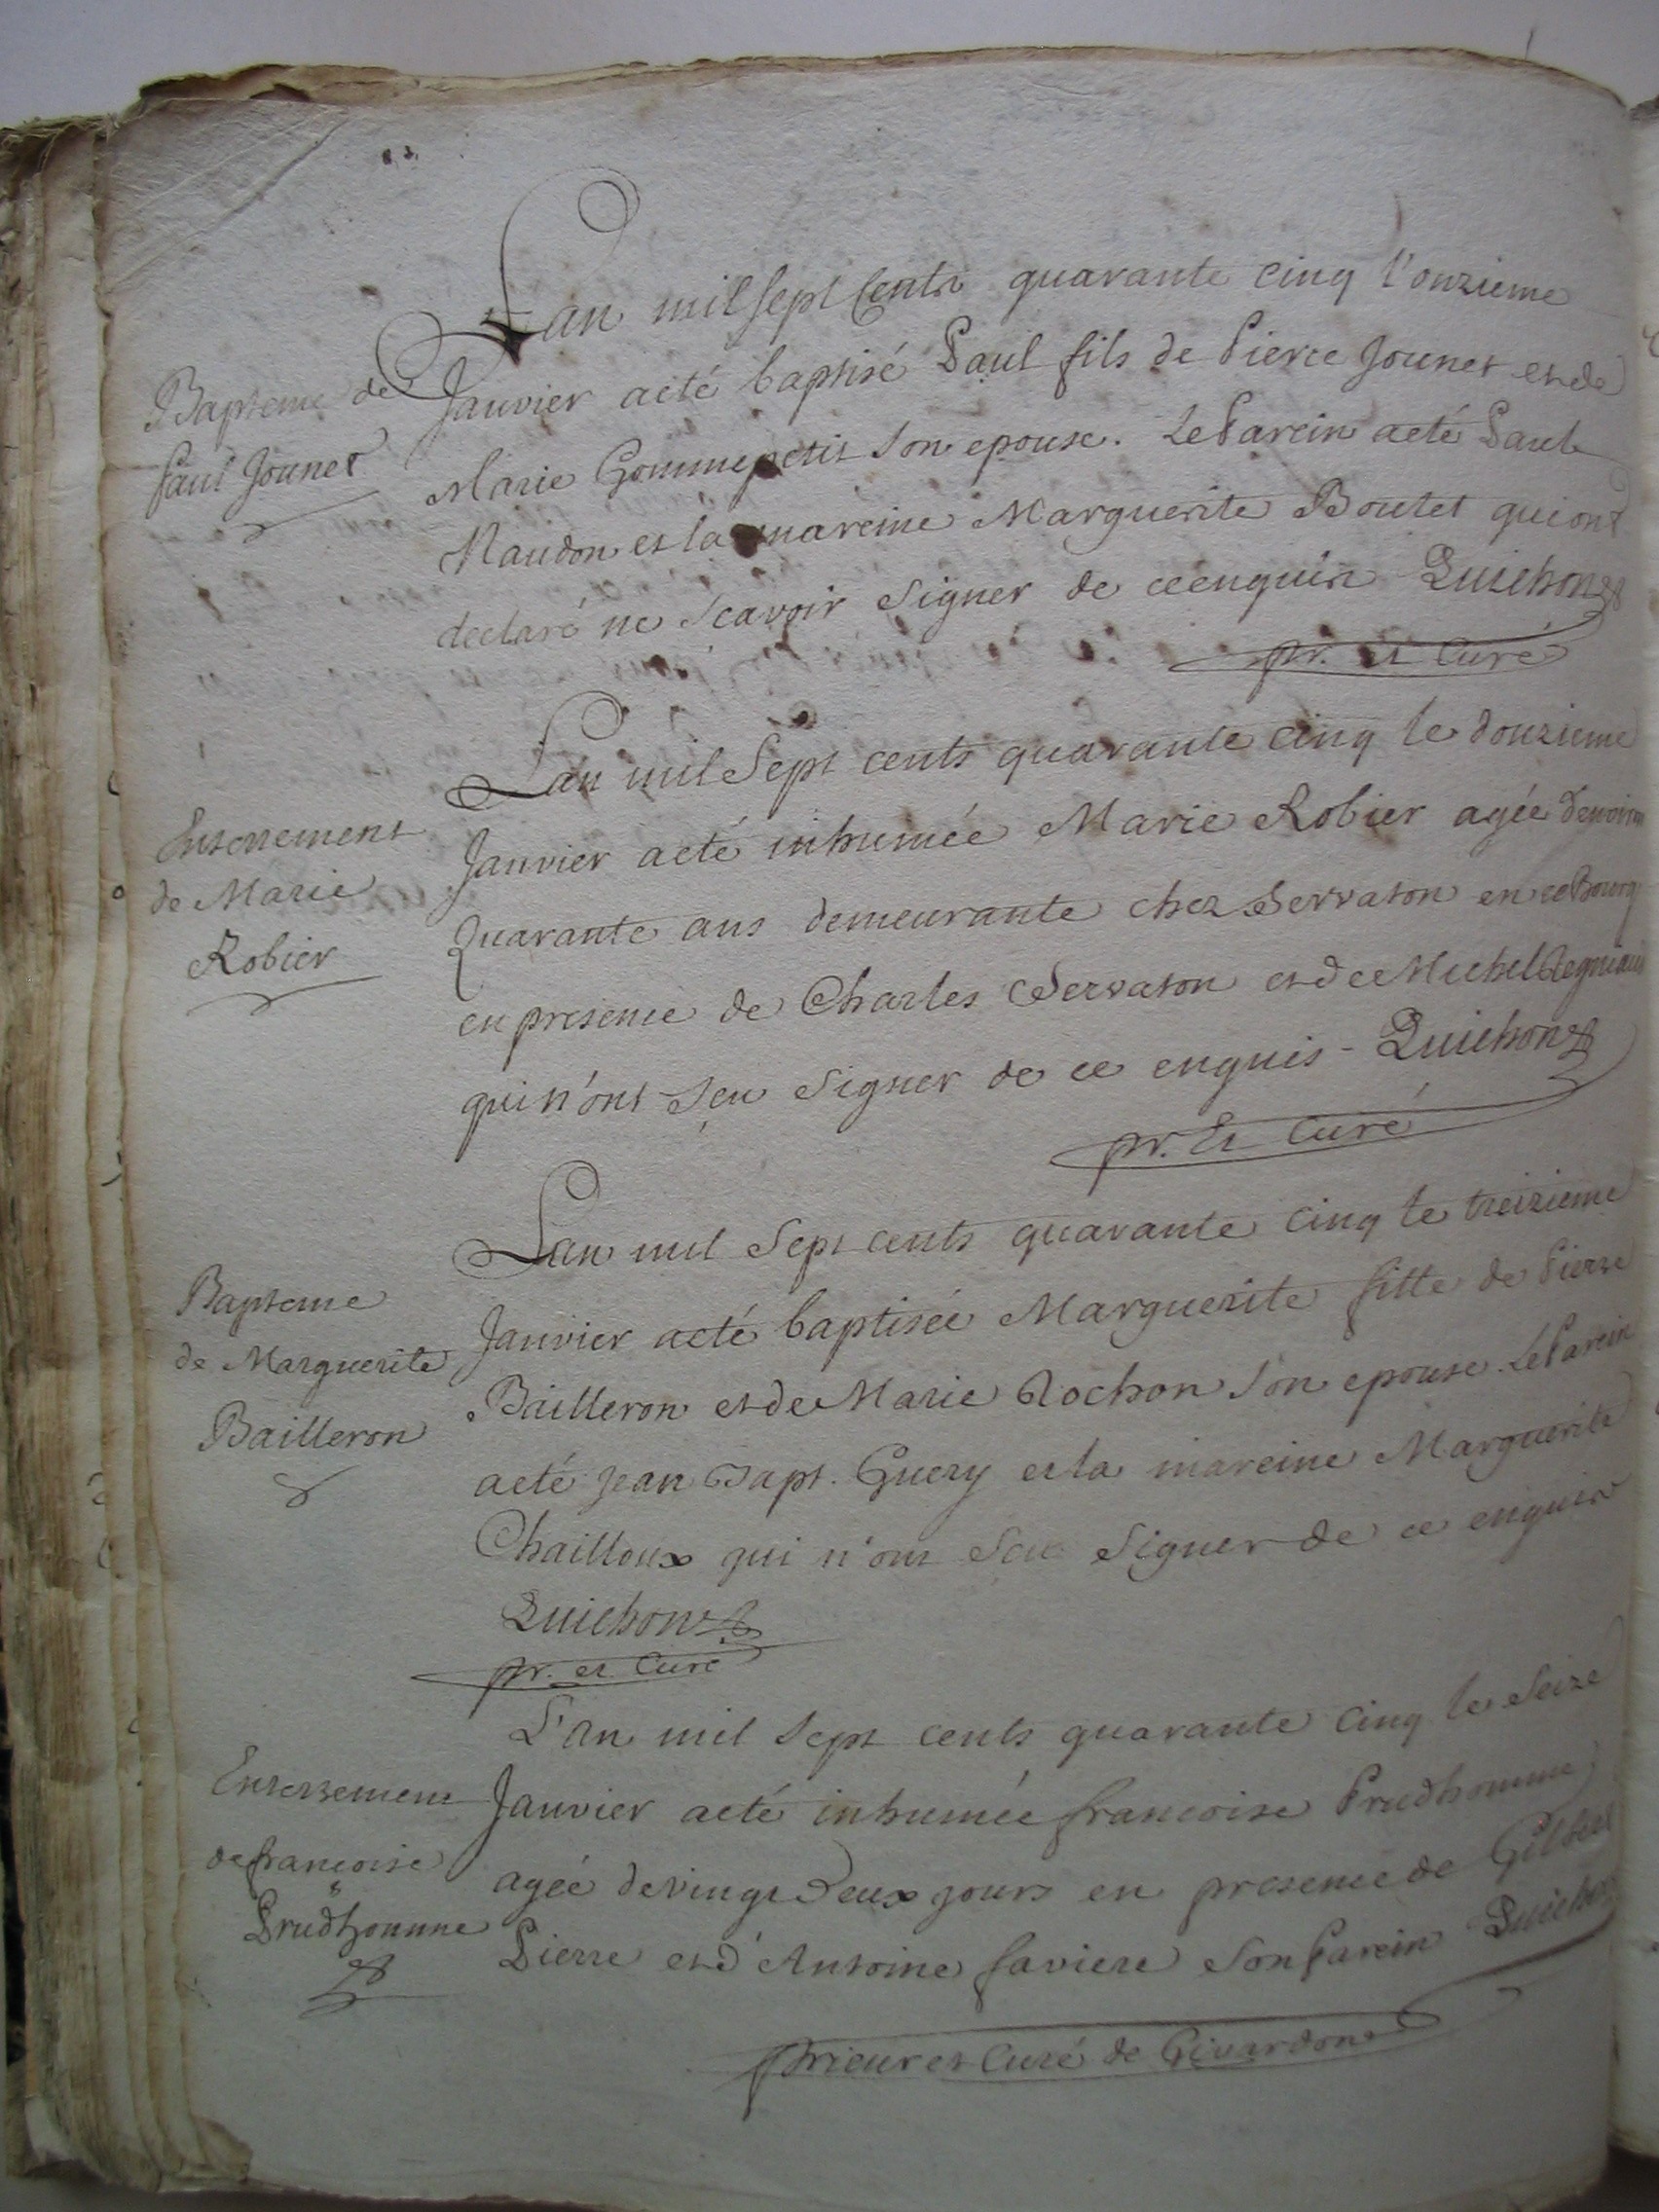 Bapteme de
Paul Jounet
L'an mil sept cents quarante cinq l'onzieme
Janvier aeté baptisé Paul fils de Pierre Jounet et de
Marie Gommepetit son epouse. Le Parein aeté Paul
Naudon et la mareine Marguerite Boutet qui ont
declaré ne scavoir signer de ce enquis Quichon
pr. et Curé
Enterrement
de Marie
Robier
L'an mil sept cents quarante cinq le douzieme
Janvier aeté inhumée Marie Robier agée denviron
Quarante ans demeurante chez Servaton en ce Bourg
en presence de Charles Servaton et de Michel
qui n'ont sçeu signer de ce enquis - Quichon
pr. et Curé
Bapteme
de Marguerite
Bailleron
L'an mil sept cents quarante cinq le treizieme
Janvier aeté baptisée Marguerite fille de Pierre
Bailleron et de Marie Rochon son epouse. Le Parein
aeté Jean Bapt. Guery et la mareine Marguerite
Chailloux qui n'ont sceu signer de ce enquis
Quichon
pr. et Curé
Enterrement
de francoise
Prudhomme
L'An mil sept cents quarante cinq le seize
Janvier aeté inhumée francoise Prudhomme
agée de vingt deux jours en presence de Gilbert
Pierre et d'Antoine faviere son Parein Quichon
Prieur et Curé de Givardon